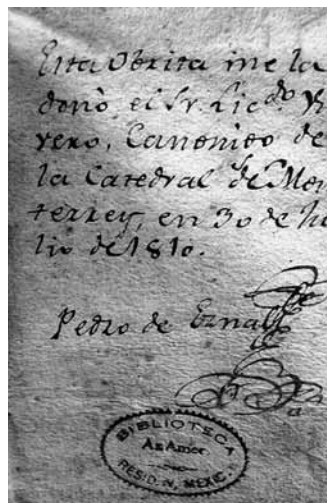 Esta Obrita me la
donò, el Sr. Licdo. Yr
vero, Canonigo de
la Catedral de Mon
terrey, en 30 de Ju
lio de 1810.
Pedro de Eznal
BIBLIOTECA
Az Amor
RESID. N. MEXIC.